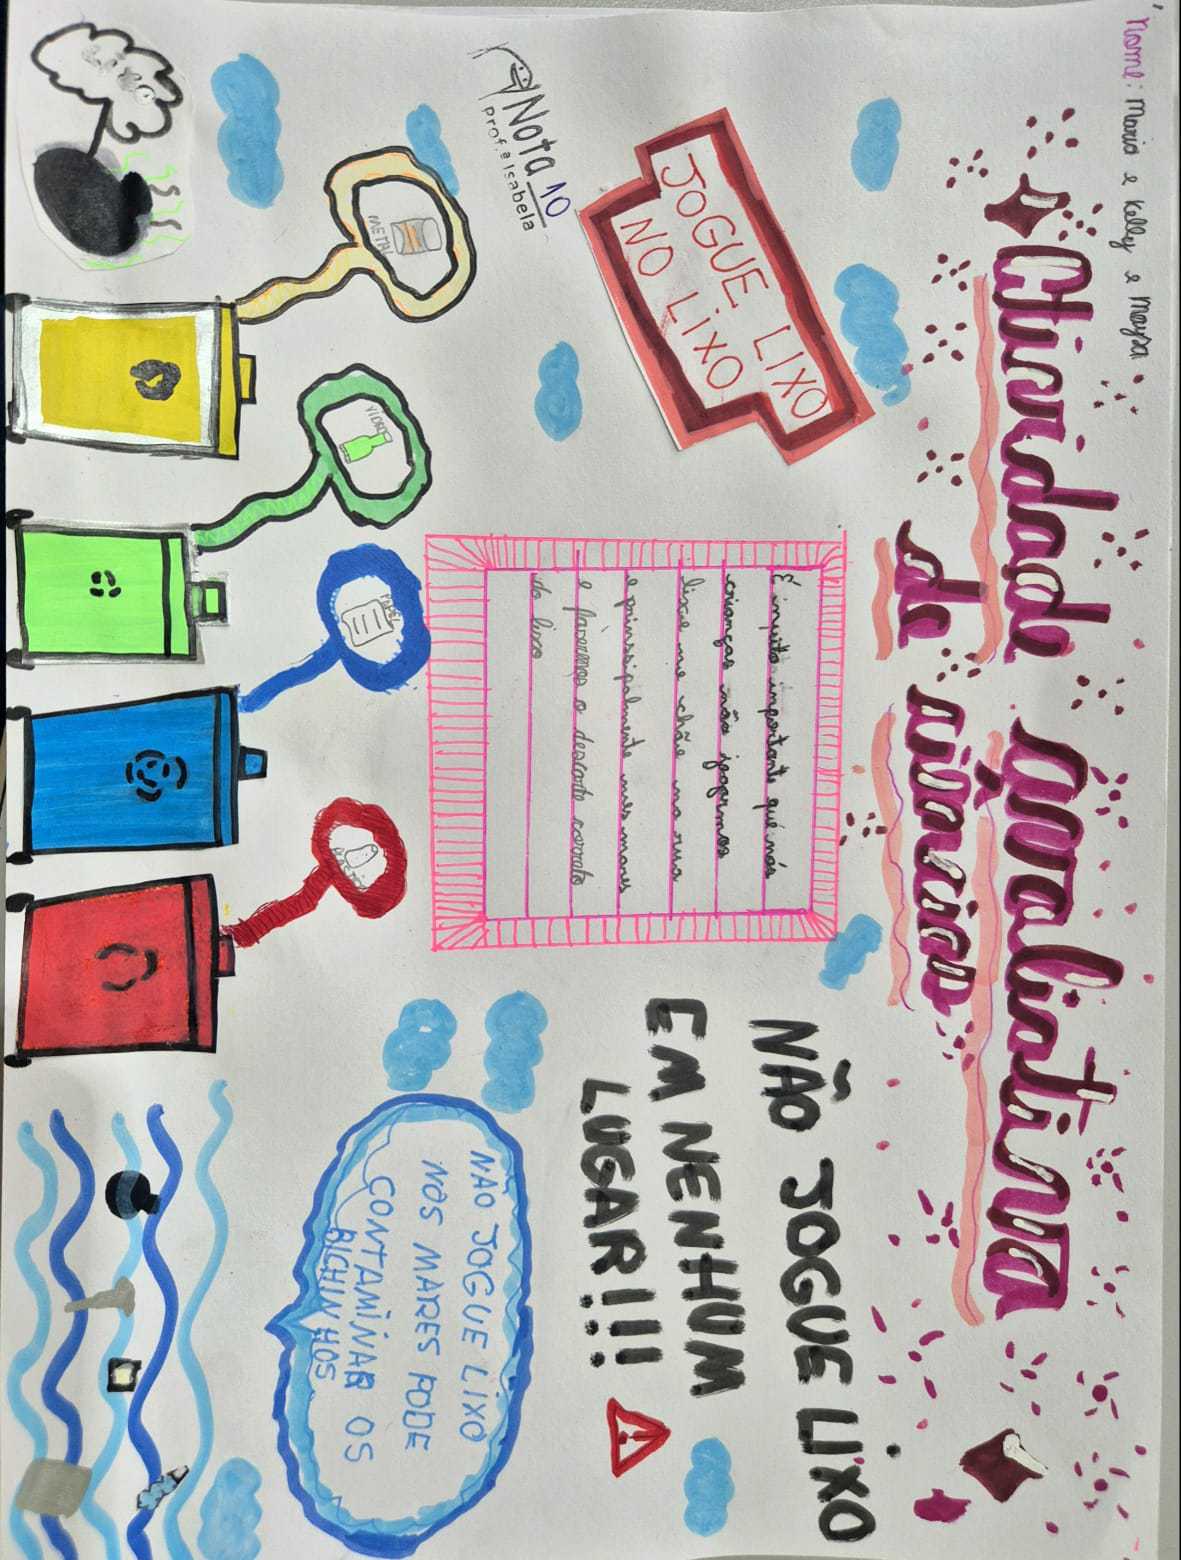 Nome: Maria e Kelly e Maysa
Atividade Avaliativa
de ciências
JOGUE LIXO
NO LIXO
Nota 10
Prof.ª Isabela
NÃO JOGUE LIXO
EM NENHUM
LUGAR!!!
É muito importante que nós
crianças não jogarmos
lixo no chão na rua
e prinssipalmente nos mares
e fazermos o descarte correto
do lixo
METAL
VIDRO
PAPEL
NÃO JOGUE LIXO
NOS MARES PODE
CONTAMINAR OS
BICHINHOS